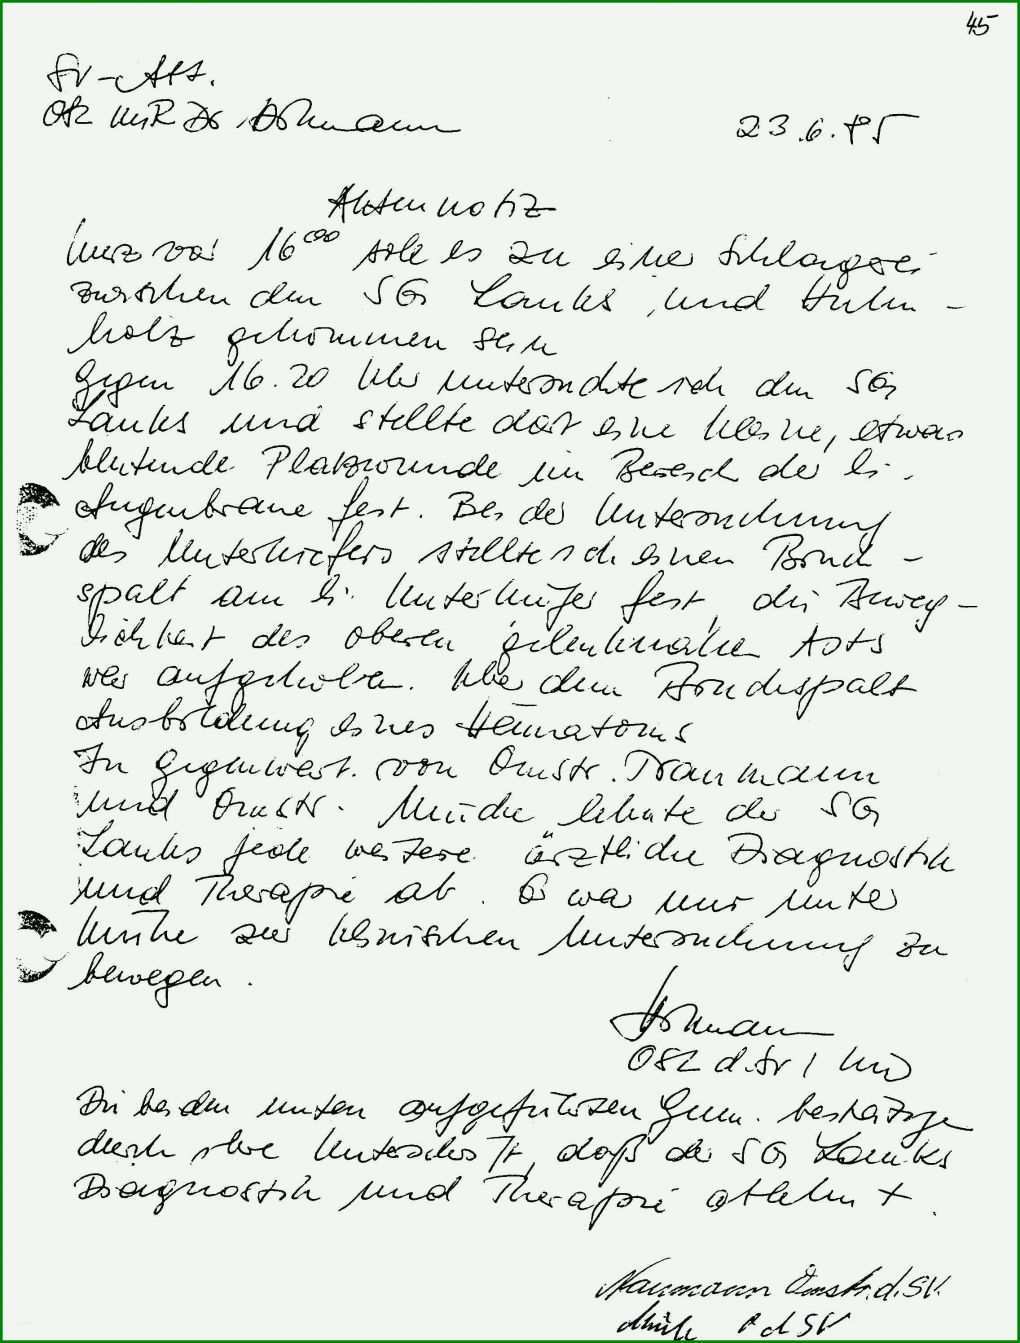 45
SV-Abt.
OSL MR Dr
23.6.85
Aktennotiz
Kurz vor 16⁰⁰ soll es zu einer Schlägerei
zwischen den SG Lauks und
holz gekommen sein
Gegen 16.20 Uhr untersuchte ich den SG
Lauks und stellte dort eine kleine, etwas
blutende Platzwunde im Bereich der li.
Augenbraue fest. Bei der Untersuchung
des Unterkiefers stellte ich einen Bruch-
spalt am li. Unterkiefer fest, die Beweg-
lichkeit des oberen gelenknahen Asts
war aufgehoben. Über dem Bruchspalt
Ausbildung eines Hämatoms
In Gegenwart von Omstr.
und Omstr. lehnte der SG
Lauks jede weitere ärztliche Diagnostik
und Therapie ab. Er war nur unter
Mühe zur klinischen Untersuchung zu
bewegen.
OSL d. SV
Die beiden unten aufgeführten Genn. bestätigen
durch ihre Unterschrift, daß der SG Lauks
Diagnostik und Therapie ablehnt.
Naumann Omstr. d. SV.
d SV